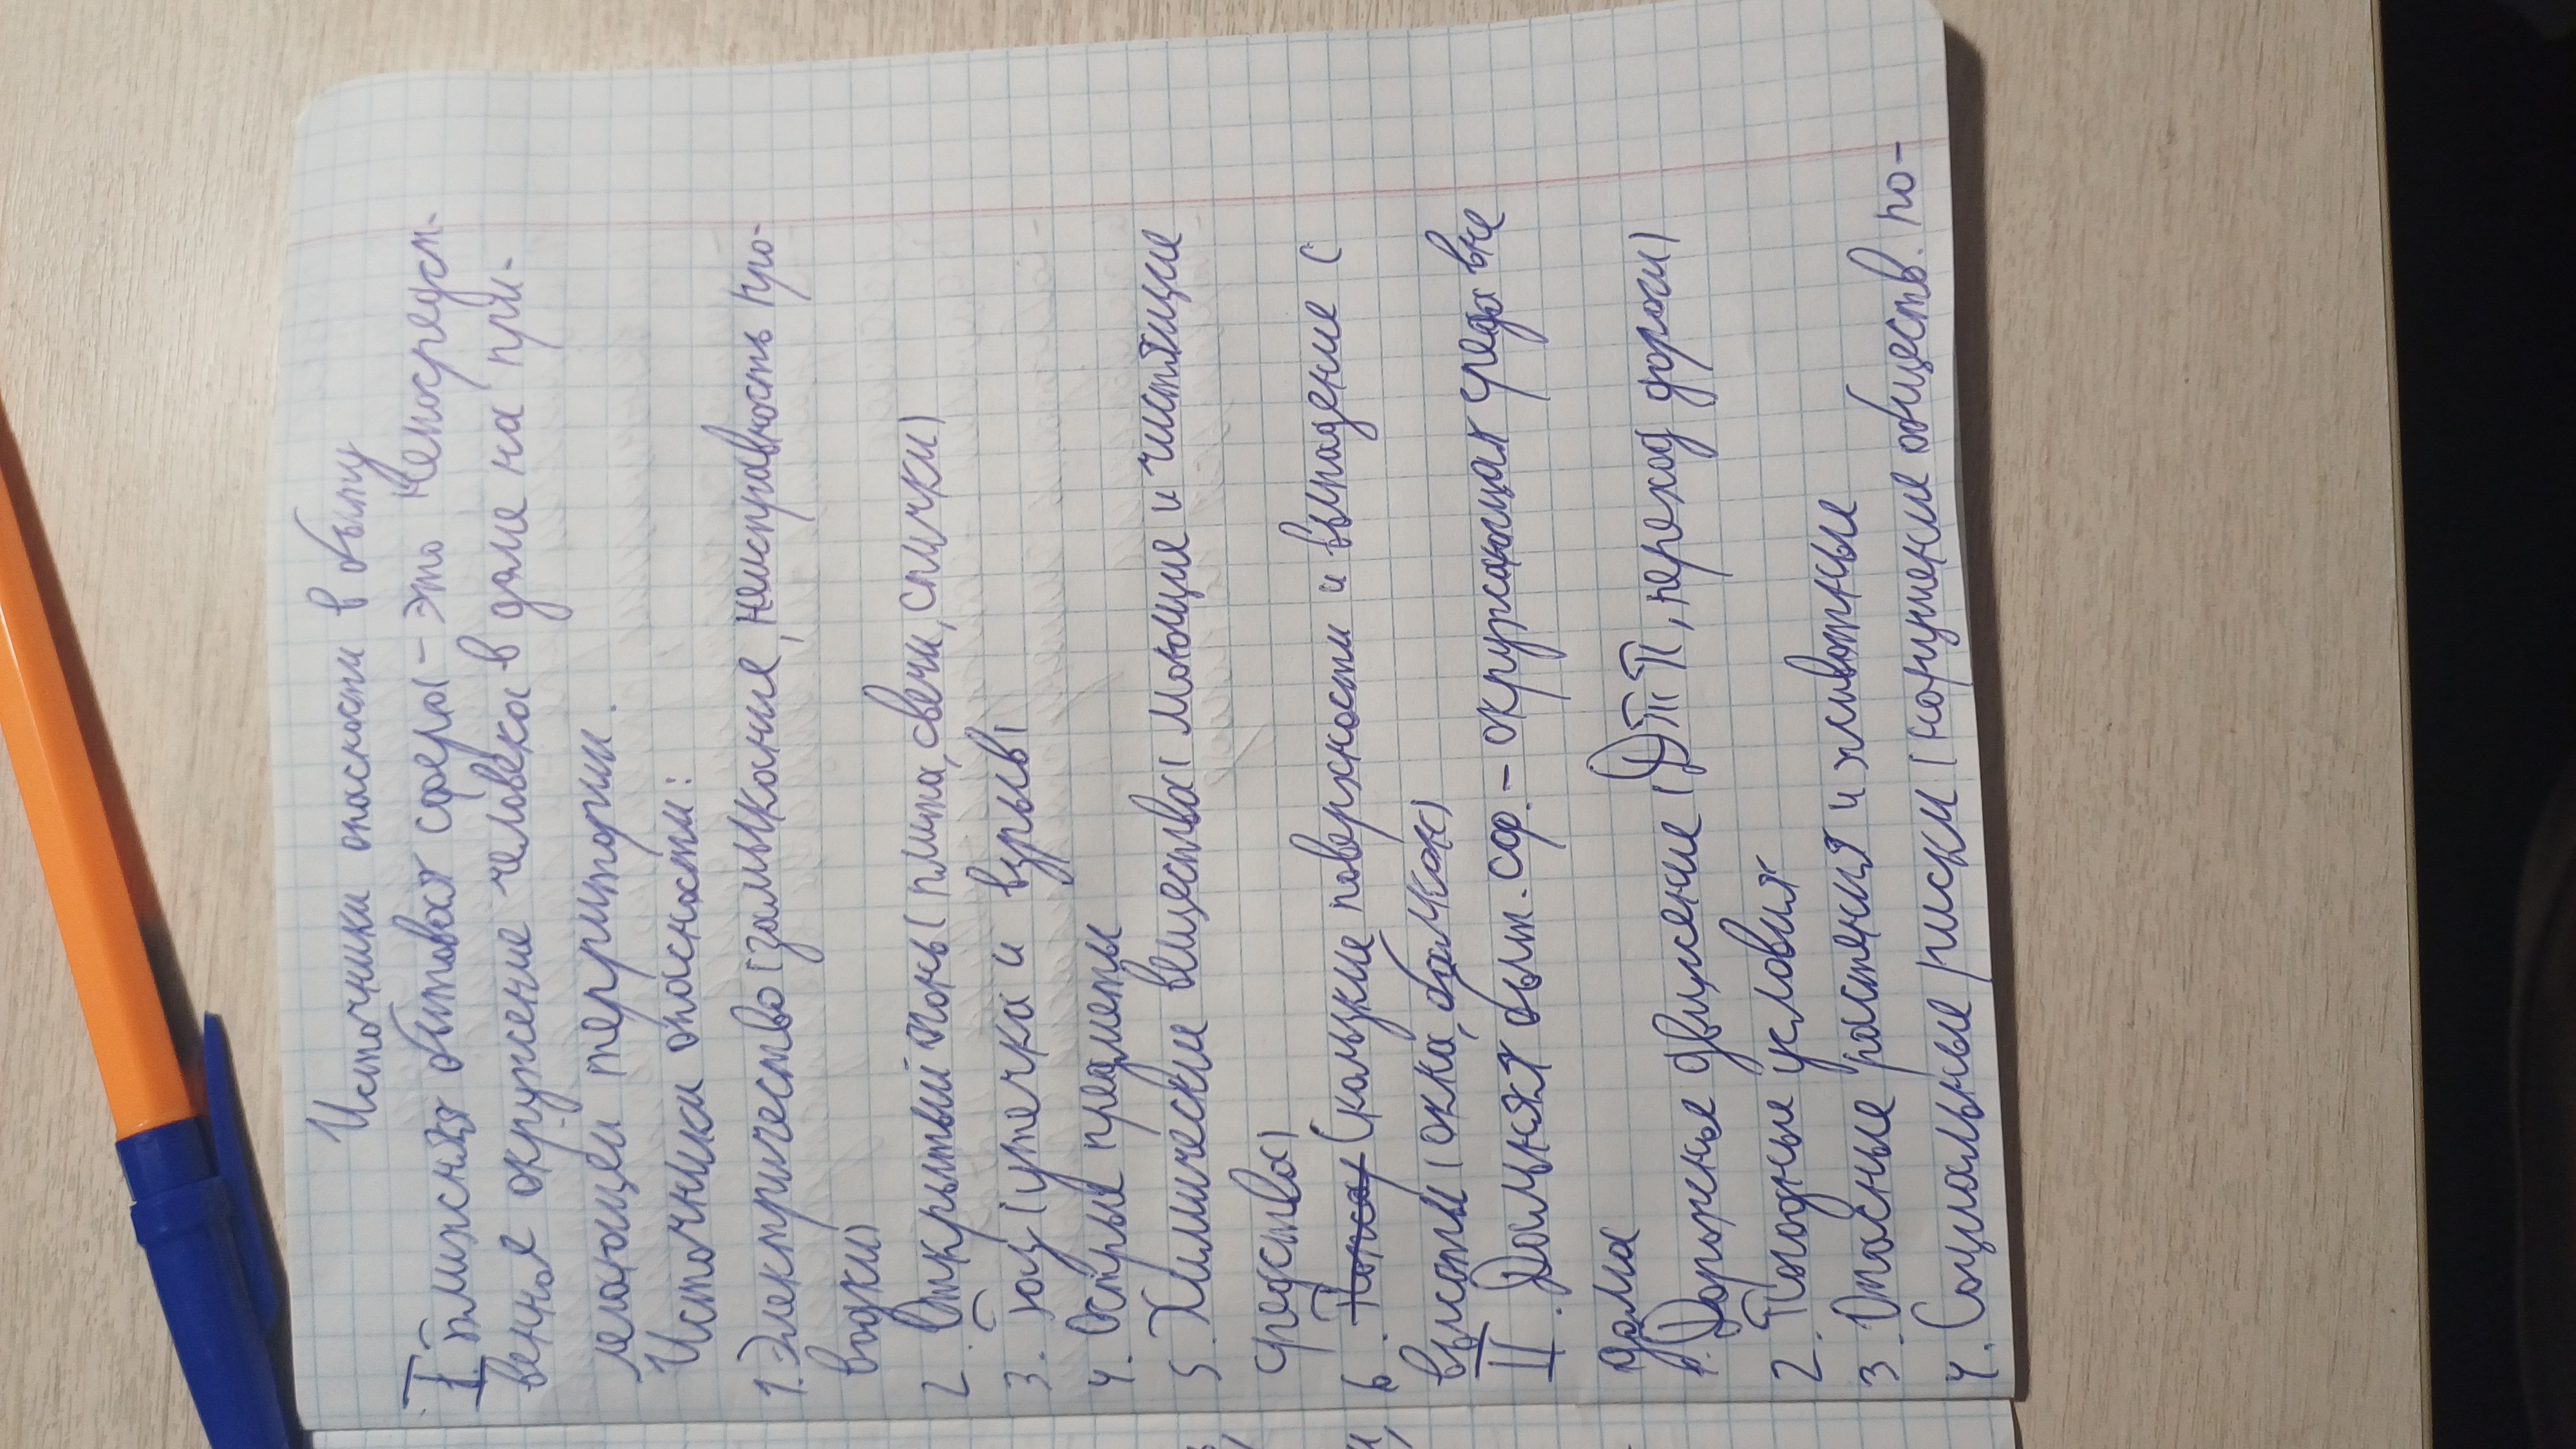 Источники опасности в быту
I Ближняя бытовая сфера - это непосредст-
венное окружение человека в доме на при-
легающей территории.
Источники опасности:
1. Электричество (замыкание, неисправность про-
водки)
2. Открытый огонь (плита, свечи, спички)
3. Газ (утечка и взрыв)
4. Острые предметы
5. Химические вещества (моющие и чистящие
средства)
6. Скользкие поверхности и выпадение с
высоты (окна, балкон)
II. Дальняя быт. сф. - окружающая среда вне
дома
1. Дорожное движение (ДТП, переход дороги)
2. Погодные условия
3. Опасные растения и животные
4. Социальные риски (нарушение обществ. по-